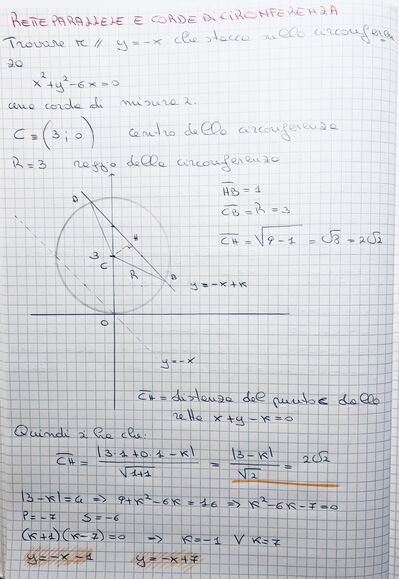 RETE PARALLELE E CORDE DI CIRCONFERENZA
Trovare r // y=-x che stacca sulla circonferen
za
x²+y²-6x=0
una corda di misura 2.
C ≡ (3;0) centro della circonferenza
R=3 raggio della circonferenza
HB = 1
CB = R = 3
CH = √9-1 = √8 = 2√2
A
H
3
C
R
B
y=-x+k
O
y=-x
CH = distanza del punto C dalla
retta x+y-k=0
Quindi si ha che:
CH = |3·1+0·1-k| / √1+1 = |3-k| / √2 = 2√2
|3-k|=4 => 9+k²-6k=16 => k²-6k-7=0
P=-7 S=-6
(k+1)(k-7)=0 => k=-1 V k=7
y=-x-1 y=-x+7